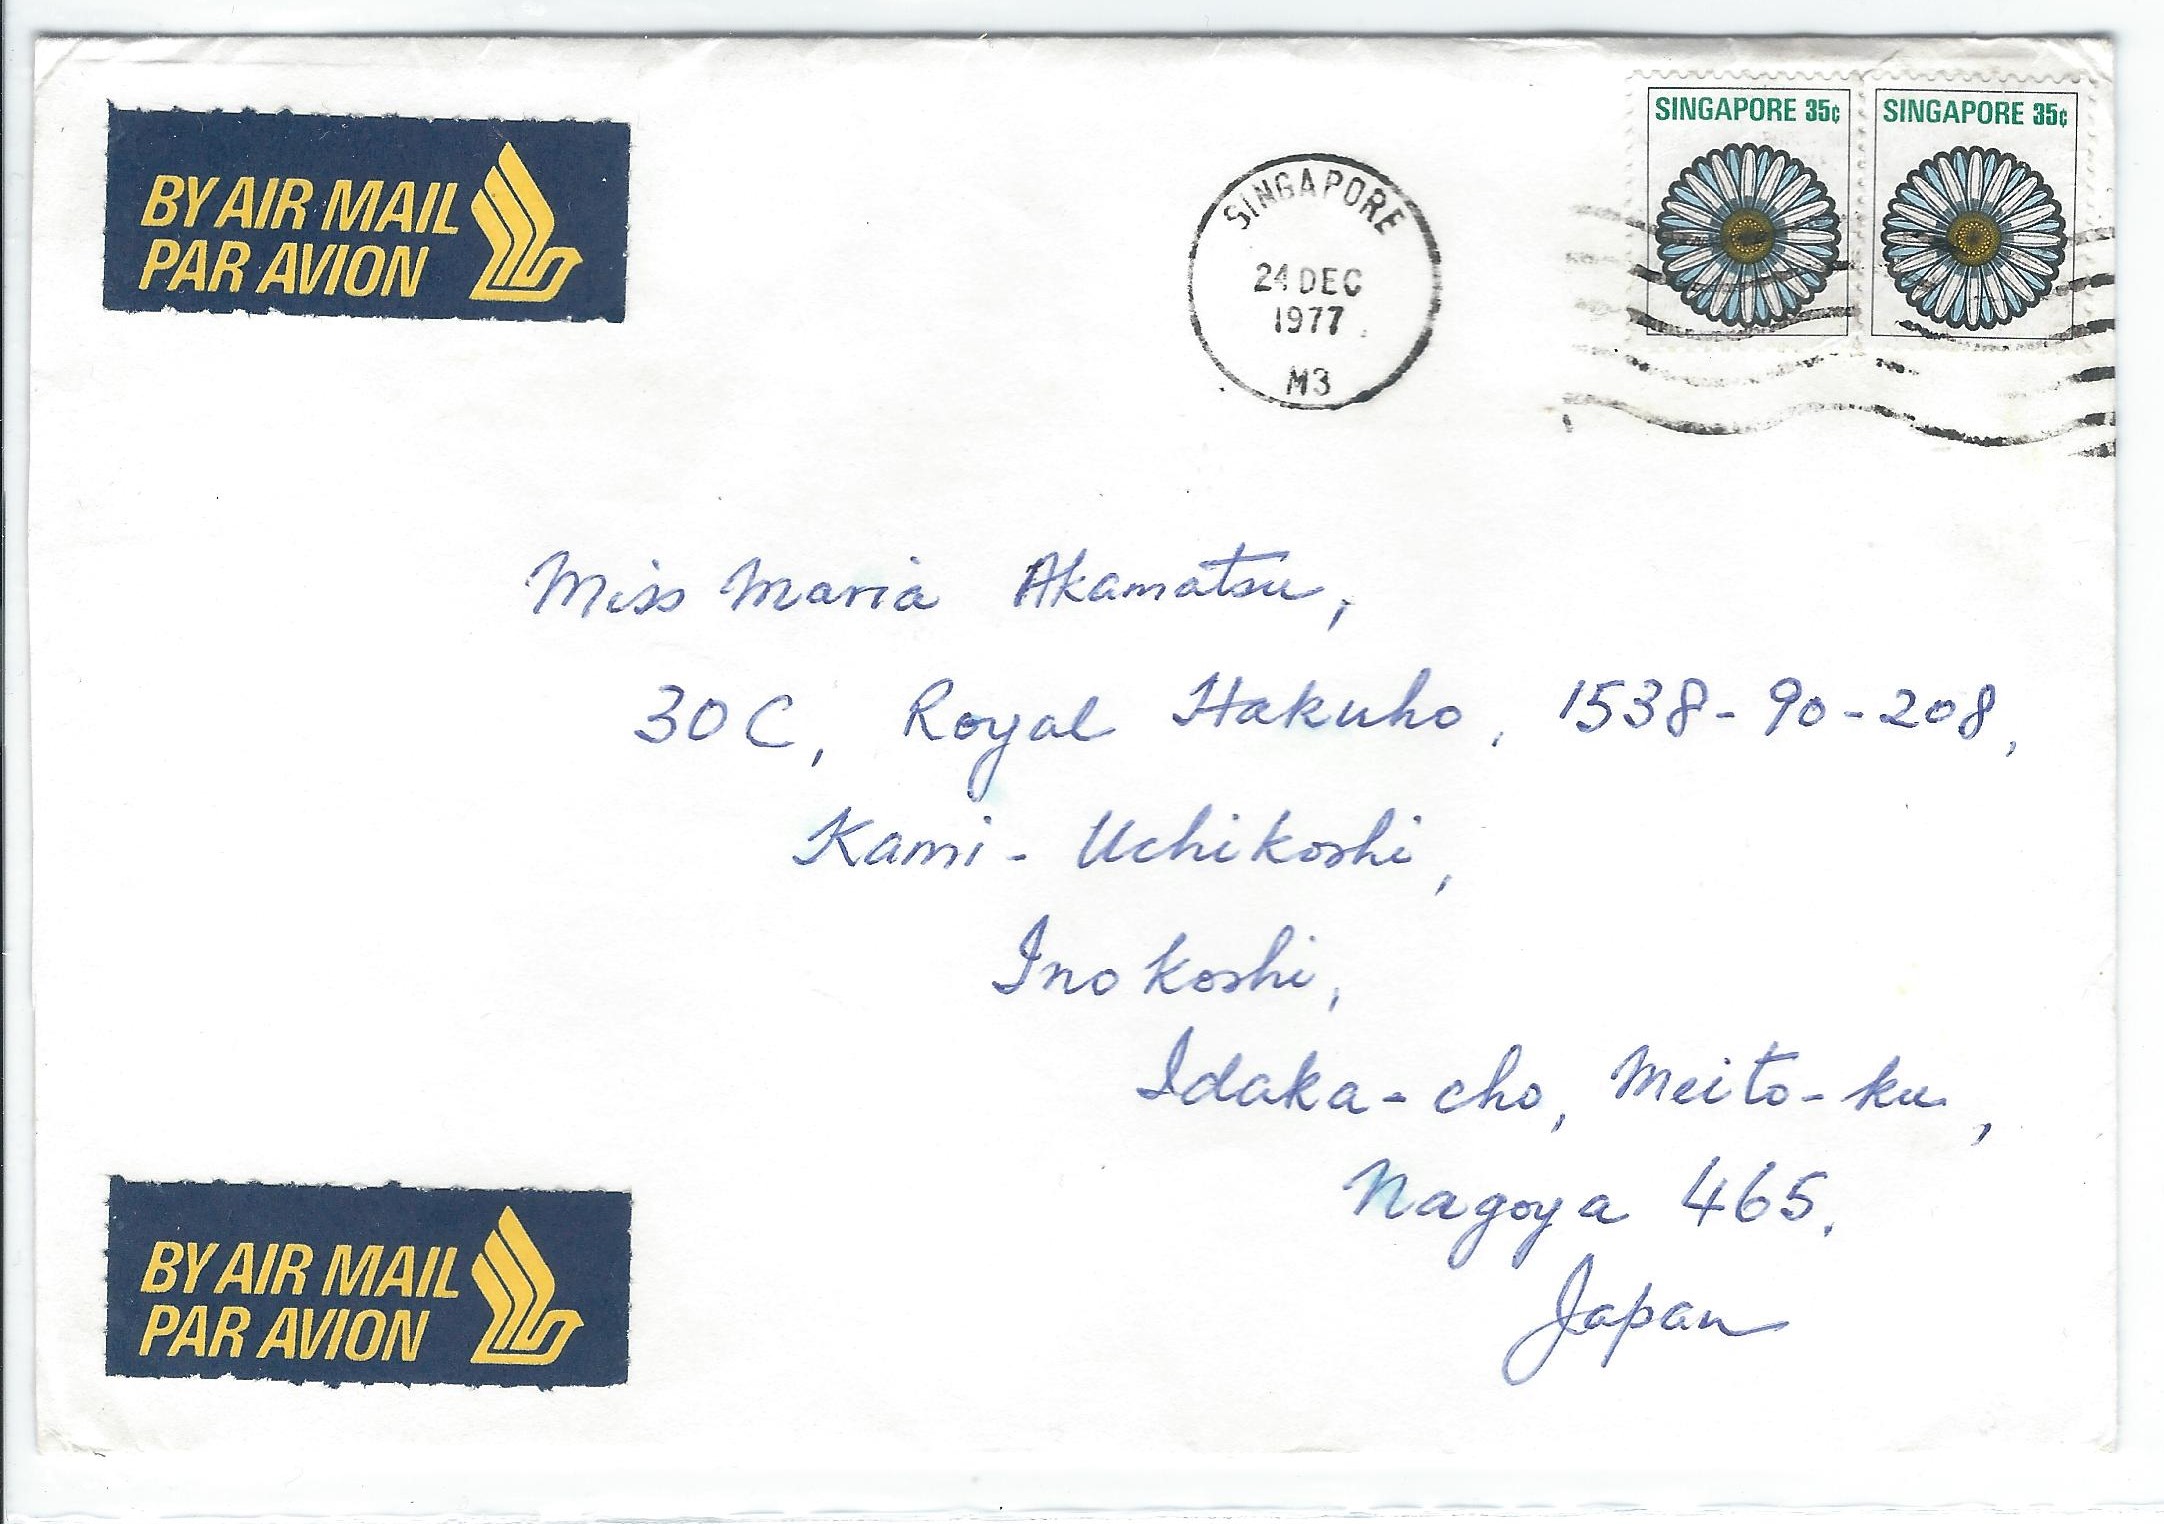 BY AIR MAIL
PAR AVION
SINGAPORE 35¢
SINGAPORE 35¢
SINGAPORE
24 DEC
1977
M3
Miss Maria Akamatsu,
30C, Royal Hakuho, 1538-90-208,
Kami-Uchikoshi,
Inokoshi,
Idaka-cho, Meito-ku,
Nagoya 465.
Japan
BY AIR MAIL
PAR AVION